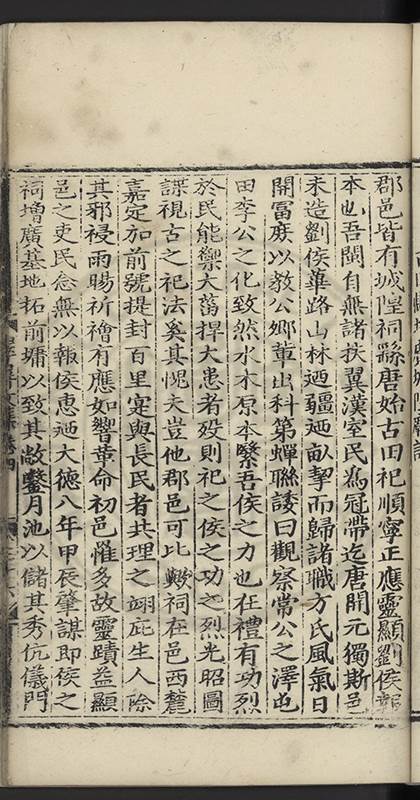 郡邑皆有城隍祠繇唐始古田祀順寧正應靈顯劉侯
本也吾閩自無諸扶翼漢室民為冠帶迄唐開元獨斯邑
未造劉侯蓽路山林廼疆廼畝挈而歸諸職方氏風氣日
開冨庻以教公卿軰出科第蟬聯諉曰觀察常公之澤屯
田李公之化致然水木原本繄吾侯之力也在禮有功烈
於民能禦大菑捍大患者殁則祀之侯之功之烈光昭圖
諜視古之祀法奚其愧夫豈他郡邑可比歟祠在邑西麓
嘉定加前號提封百里寔與長民者共理之翊庇生人除
其邪祲雨暘祈禬有應如響革命初邑罹多故靈蹟益顯
邑之吏民念無以報侯恵廼大德八年甲辰肇謀即侯之
祠增廣基地拓前墉以致其敞鑿月池以儲其秀伉儀門